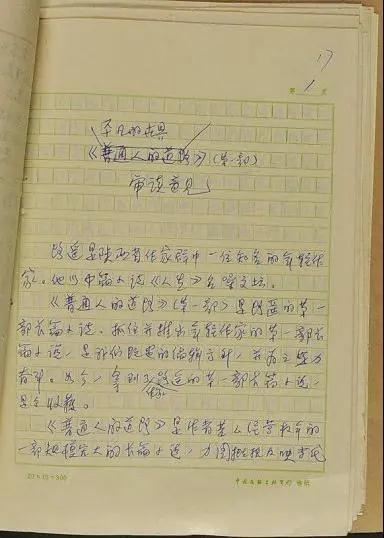 17
第 1 页
平凡的世界
《普通人的道路》(第一部)
审读意见
路遥是陕西省作家群中一位知名的年轻作
家。他以中篇小说《人生》名噪文坛。
《普通人的道路》(第一部)是路遥的第一
部长篇小说。抓住并推出年轻作家的第一部长
篇小说，是我们既定的编辑方针，并为之努力
奋斗。如今，拿到了路遥的第一部长篇小说，
是个收获。
《普通人的道路》是作者苦心经营数年的
一部规模宏大的长篇小说，力图概括反映当代
20×15=300
中国文联出版公司 稿纸